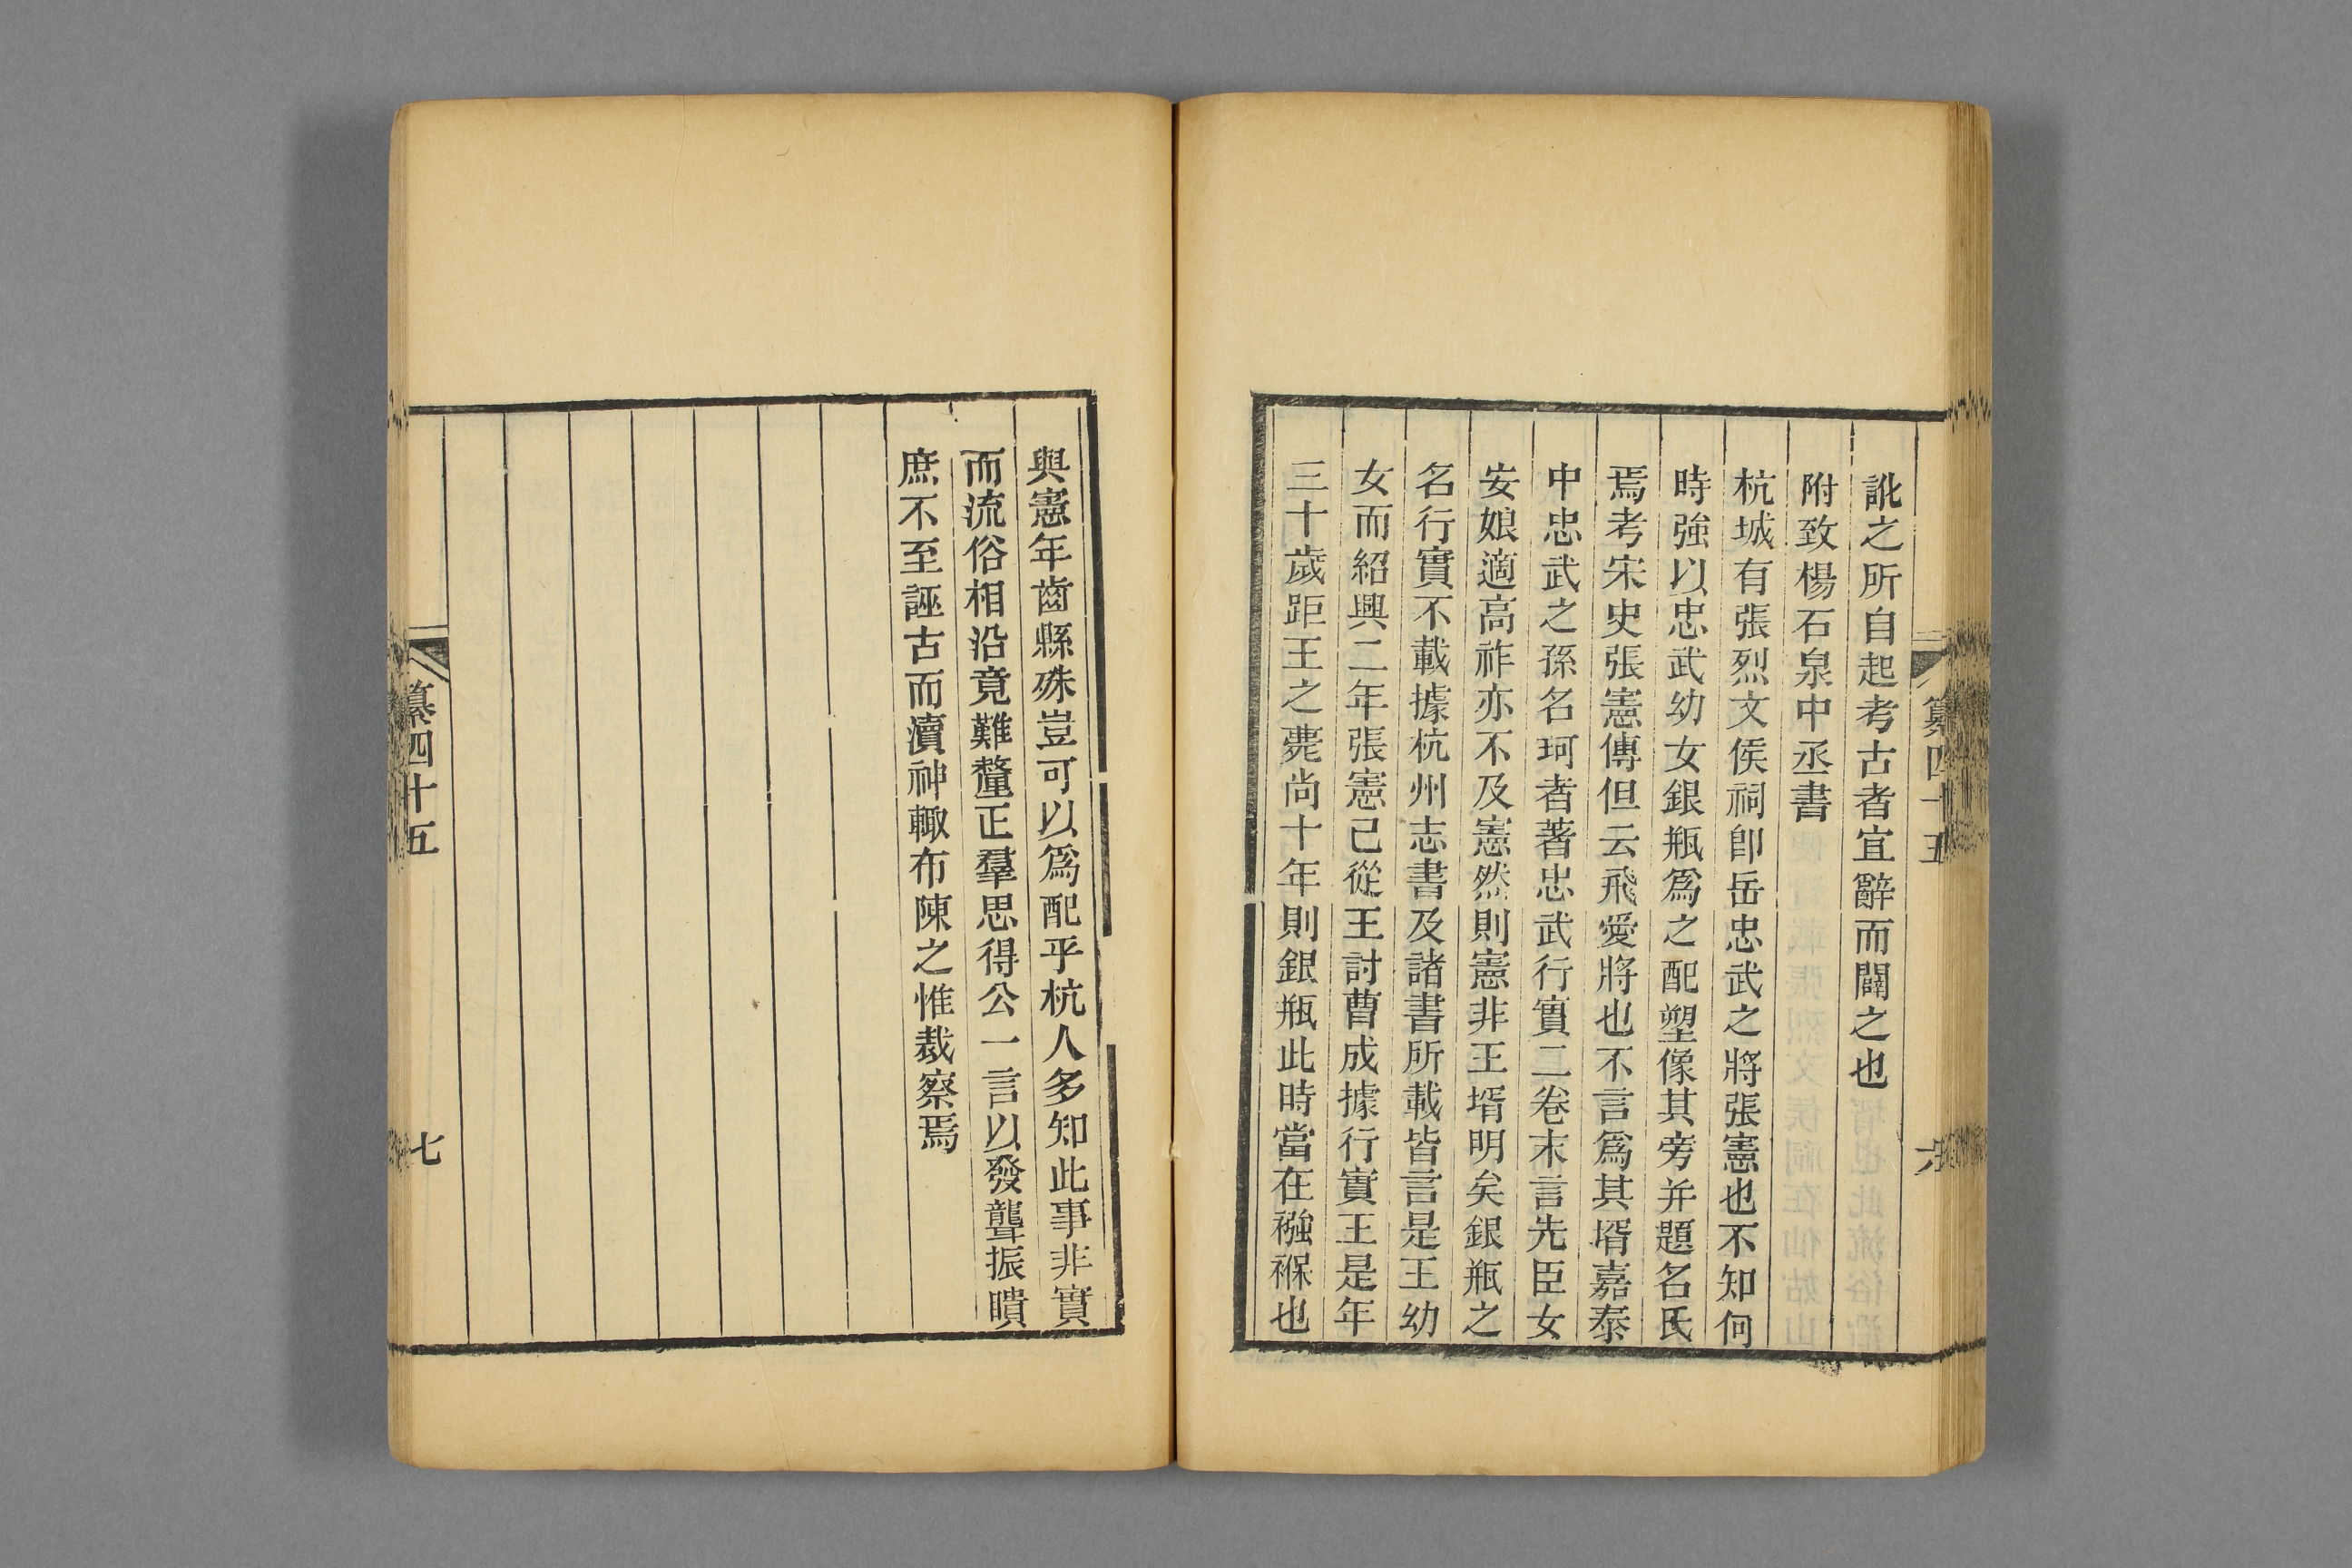 纂四十五
六
訛之所自起考古者宜辭而闢之也
附致楊石泉中丞書
杭城有張烈文侯祠卽岳忠武之將張憲也不知何
時強以忠武幼女銀瓶爲之配塑像其旁并題名氏
焉考宋史張憲傳但云飛愛將也不言爲其壻嘉泰
中忠武之孫名珂者著忠武行實二卷末言先臣女
安娘適高祚亦不及憲然則憲非王壻明矣銀瓶之
名行實不載據杭州志書及諸書所載皆言是王幼
女而紹興二年張憲已從王討曹成據行實王是年
三十歲距王之薨尚十年則銀瓶此時當在襁褓也
與憲年齒縣殊豈可以爲配乎杭人多知此事非實
而流俗相沿竟難釐正羣思得公一言以發聾振瞶
庶不至誣古而瀆神輙布陳之惟裁察焉
纂四十五
七